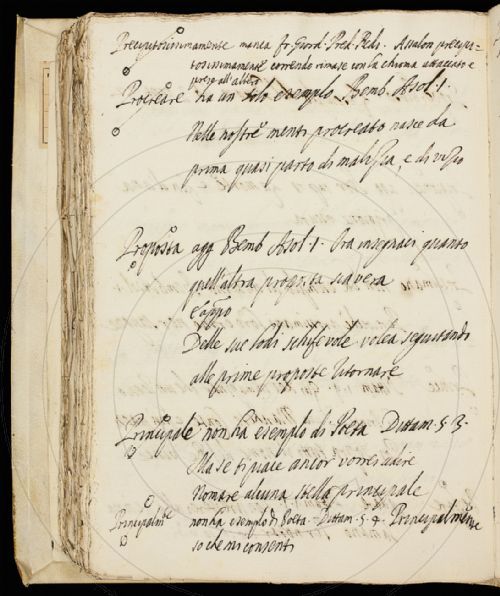 Precipitosissimamente manca fr. Giord. Pred. Reds. Assalon precipi-
tosissimamente correndo rimase con la chioma attaccato e
preso all'albero
Procreare ha un solo esempio. Bemb. Asol. 1.
Nelle nostre menti procreato nasce da
prima quasi parto di malizia, e di vizio
Proposta agg Bemb Asol. 1. Ora insegnaci quanto
quell'altra proposta sia vera
e app.o
Delle sue lodi schifevole volea seguitando
alle prime proposte ritornare
Principale non ha esempio di Poeta Dittam. 5. 3.
Ma se ti piace ancor vorrei udire
Nomare alcuna stella principale
Principalm.te non ha esempio di Poeta. Dittam. 5. 4. Principalmente
so che mi consenti